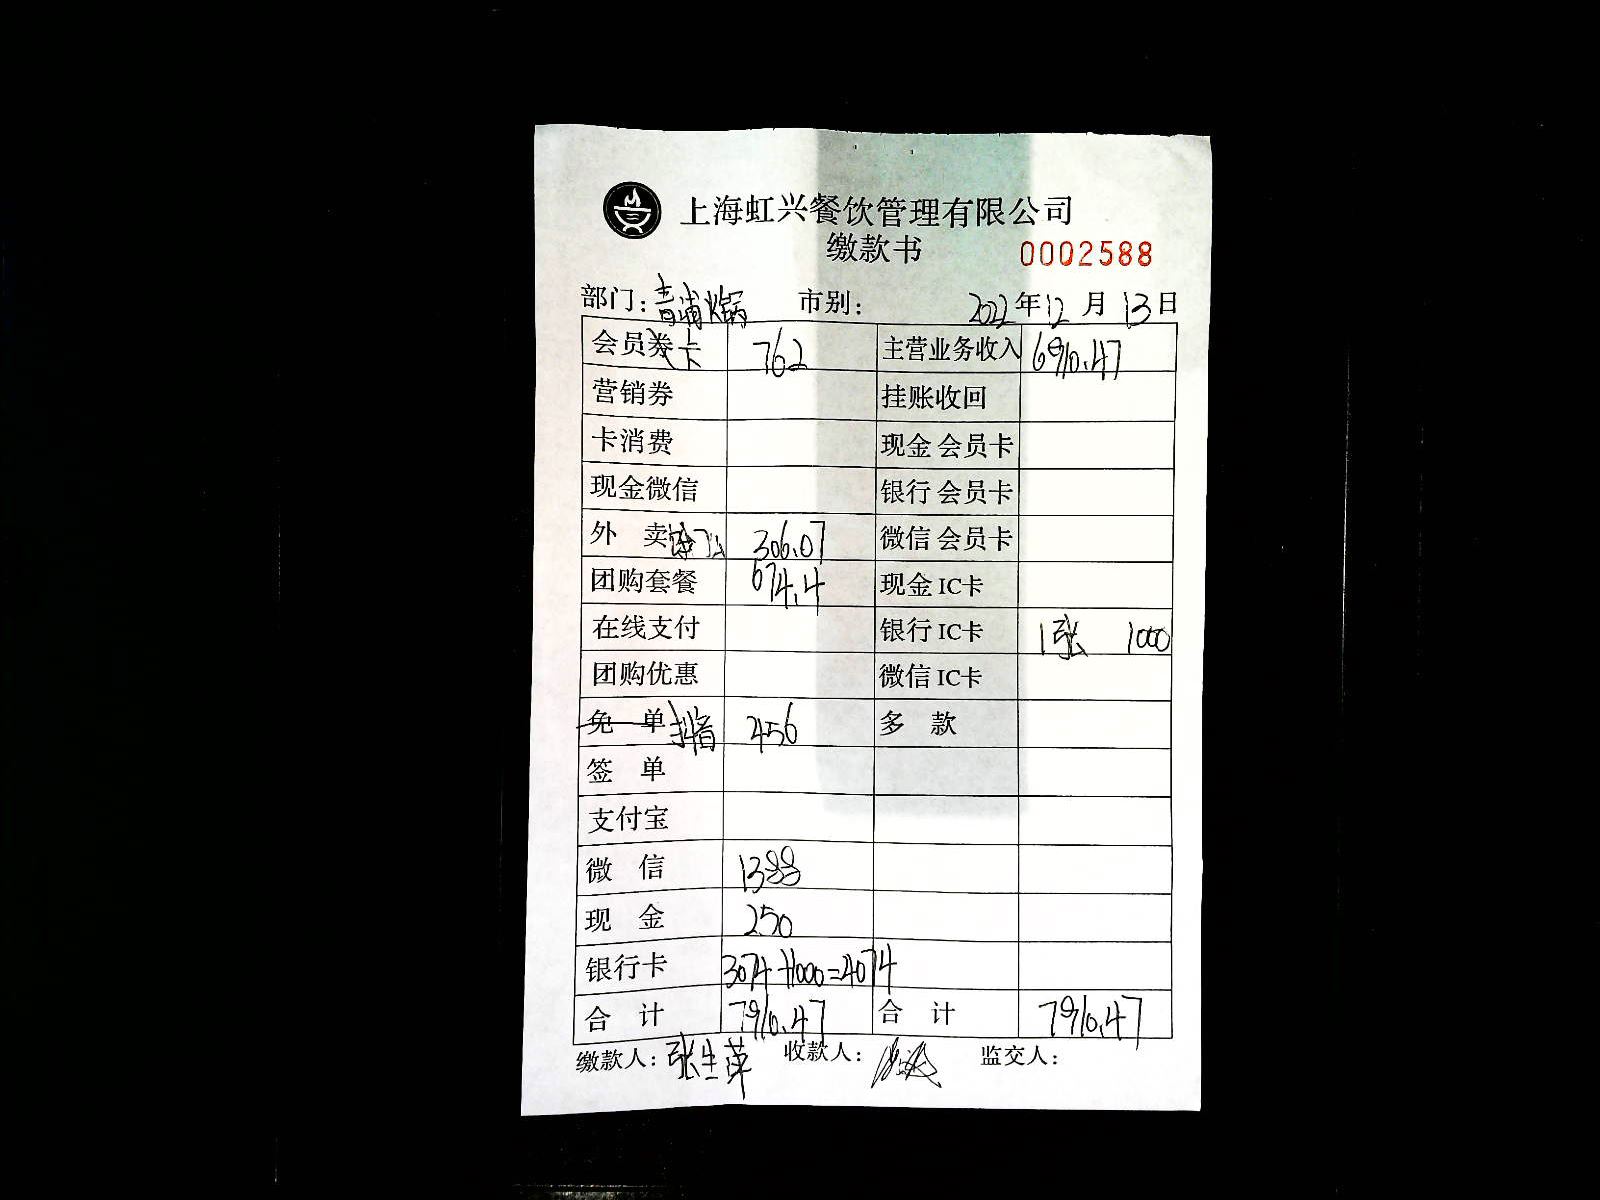 上海虹兴餐饮管理有限公司
缴款书 0002588
部门：青浦火锅 市别： 2022年12月13日
会员券卡 762 主营业务收入 6910.47
营销券 挂账收回
卡消费 现金会员卡
现金微信 银行会员卡
外 卖 306.07 微信会员卡
团购套餐 674.4 现金IC卡
在线支付 银行IC卡 1张 1000
团购优惠 微信IC卡
免 单 抖音 456 多 款
签 单
支付宝
微 信 1388
现 金 250
银行卡 3074+1000=4074
合 计 7910.47 合 计 7910.47
缴款人：张生萍 收款人： 监交人：